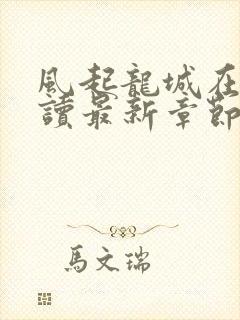 風起龍城在
讀最新章節
馬文瑞